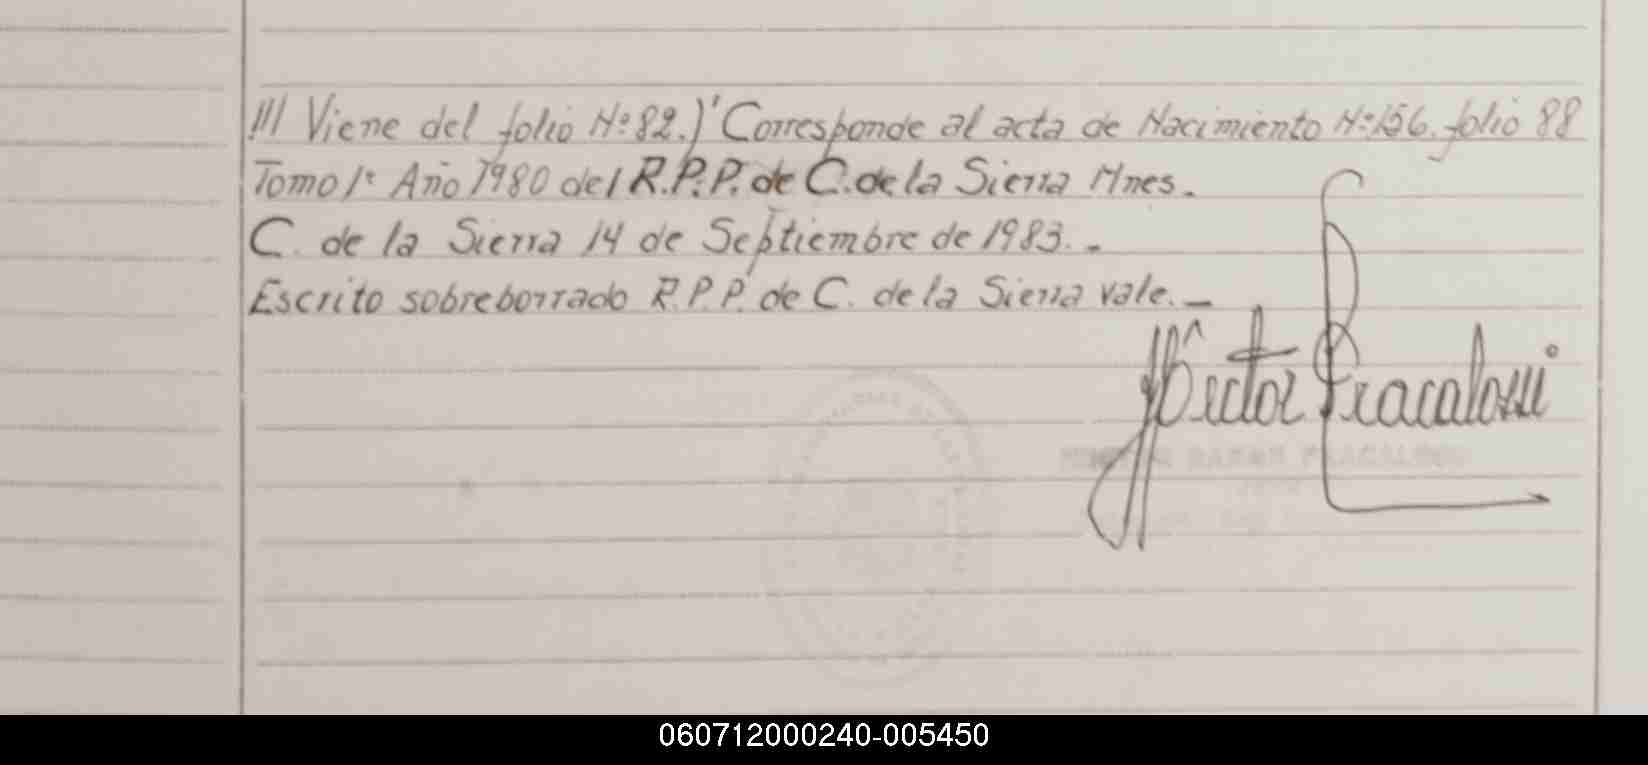 /// Viene del folio Nº 82.)' Corresponde al acta de Nacimiento Nº 156. folio 88
Tomo 1º Año 1980 del R.P.P. de C. de la Sierra Mnes.
C. de la Sierra 14 de Septiembre de 1983. -
Escrito sobreborrado R.P.P. de C. de la Sierra vale. -
Héctor Fracalossi
RAMON FRACALOSSI
060712000240-005450